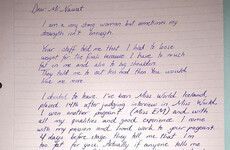 Dear Mr Nawat
I am a very strong woman but sometimes my
strength isn't enough.
Your staff told me that I had to lose
weight for the finale because I have to much
fat on me and also to big shoulders.
They told me to eat less and than you would
like me more.
I decided to leave. I've been Miss World Iceland,
placed 14th after judging interview in Miss World
I won another pageant (Miss EM) and with
all my positives and good experience. I came
with my passion and loved work to your pageant
4 days before stage they tell me that I'm
too fat for you. Actually if anyone tells me